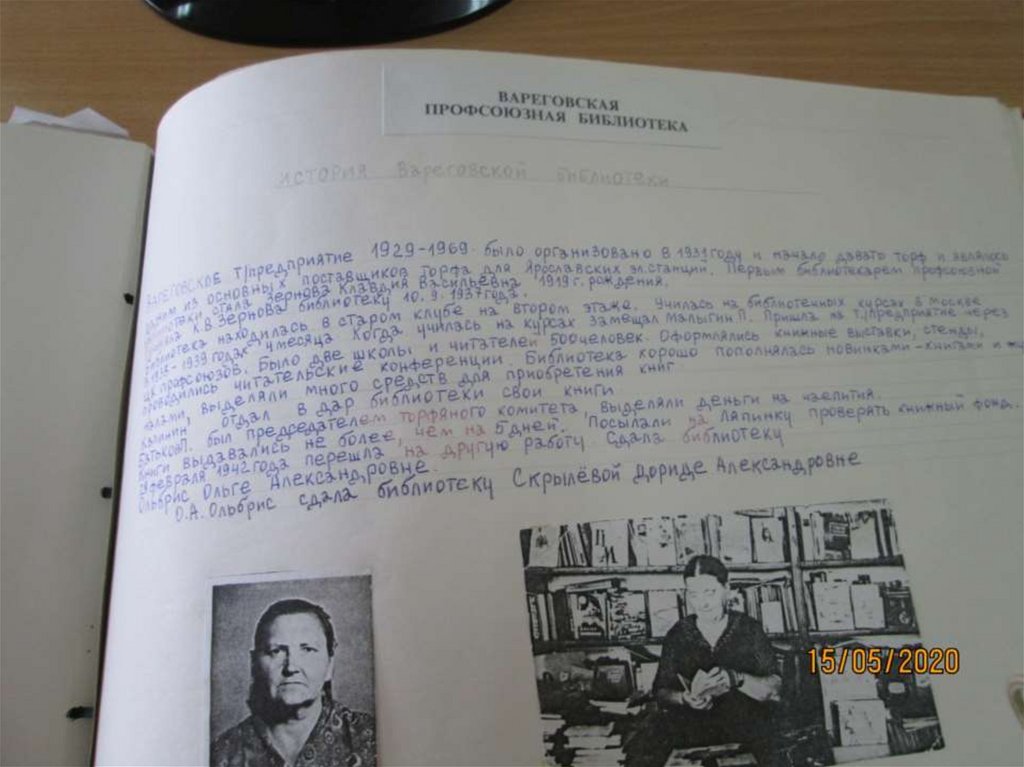 ВАРЕГОВСКАЯ
ПРОФСОЮЗНАЯ БИБЛИОТЕКА
ИСТОРИЯ Вареговской библиотеки
ВАРЕГОВСКОЕ Т/предприятие 1929-1969 было организовано в 1931 году и начало давать торф и являлось
одним из основных поставщиков торфа для Ярославских эл.станции. Первым библиотекарем профсоюзной
библиотеки стала Зернова Клавдия Васильевна 1919 г. рождения.
К.В Зернова библиотеку 10.9.1937 года.
Библиотека находилась в старом клубе на втором этаже. Училась на библиотечных курсах в Москве
в 1938-1939 годах 4 месяца Когда училась на курсах замещал Малыгин П. Пришла на т/предприятие через
ЦК профсоюзов. Было две школы и читателей 500 человек. Оформлялись книжные выставки, стенды,
проводились читательские конференции. Библиотека хорошо пополнялась новинками-книгами и
выделяли много средств для приобретения книг
Калинин отдал в дар библиотеки свои книги
Батьков П. был председателем торфяного комитета, выделяли деньги на чаепития.
Книги выдавались не более, чем на 5 дней. Посылали на Ляпинку проверять книжный фонд.
февраля 1942 года перешла на другую работу. Сдала библиотеку
Ольбрис Ольге Александровне.
О.А. Ольбрис сдала библиотеку Скрылёвой Дориде Александровне
15/05/2020